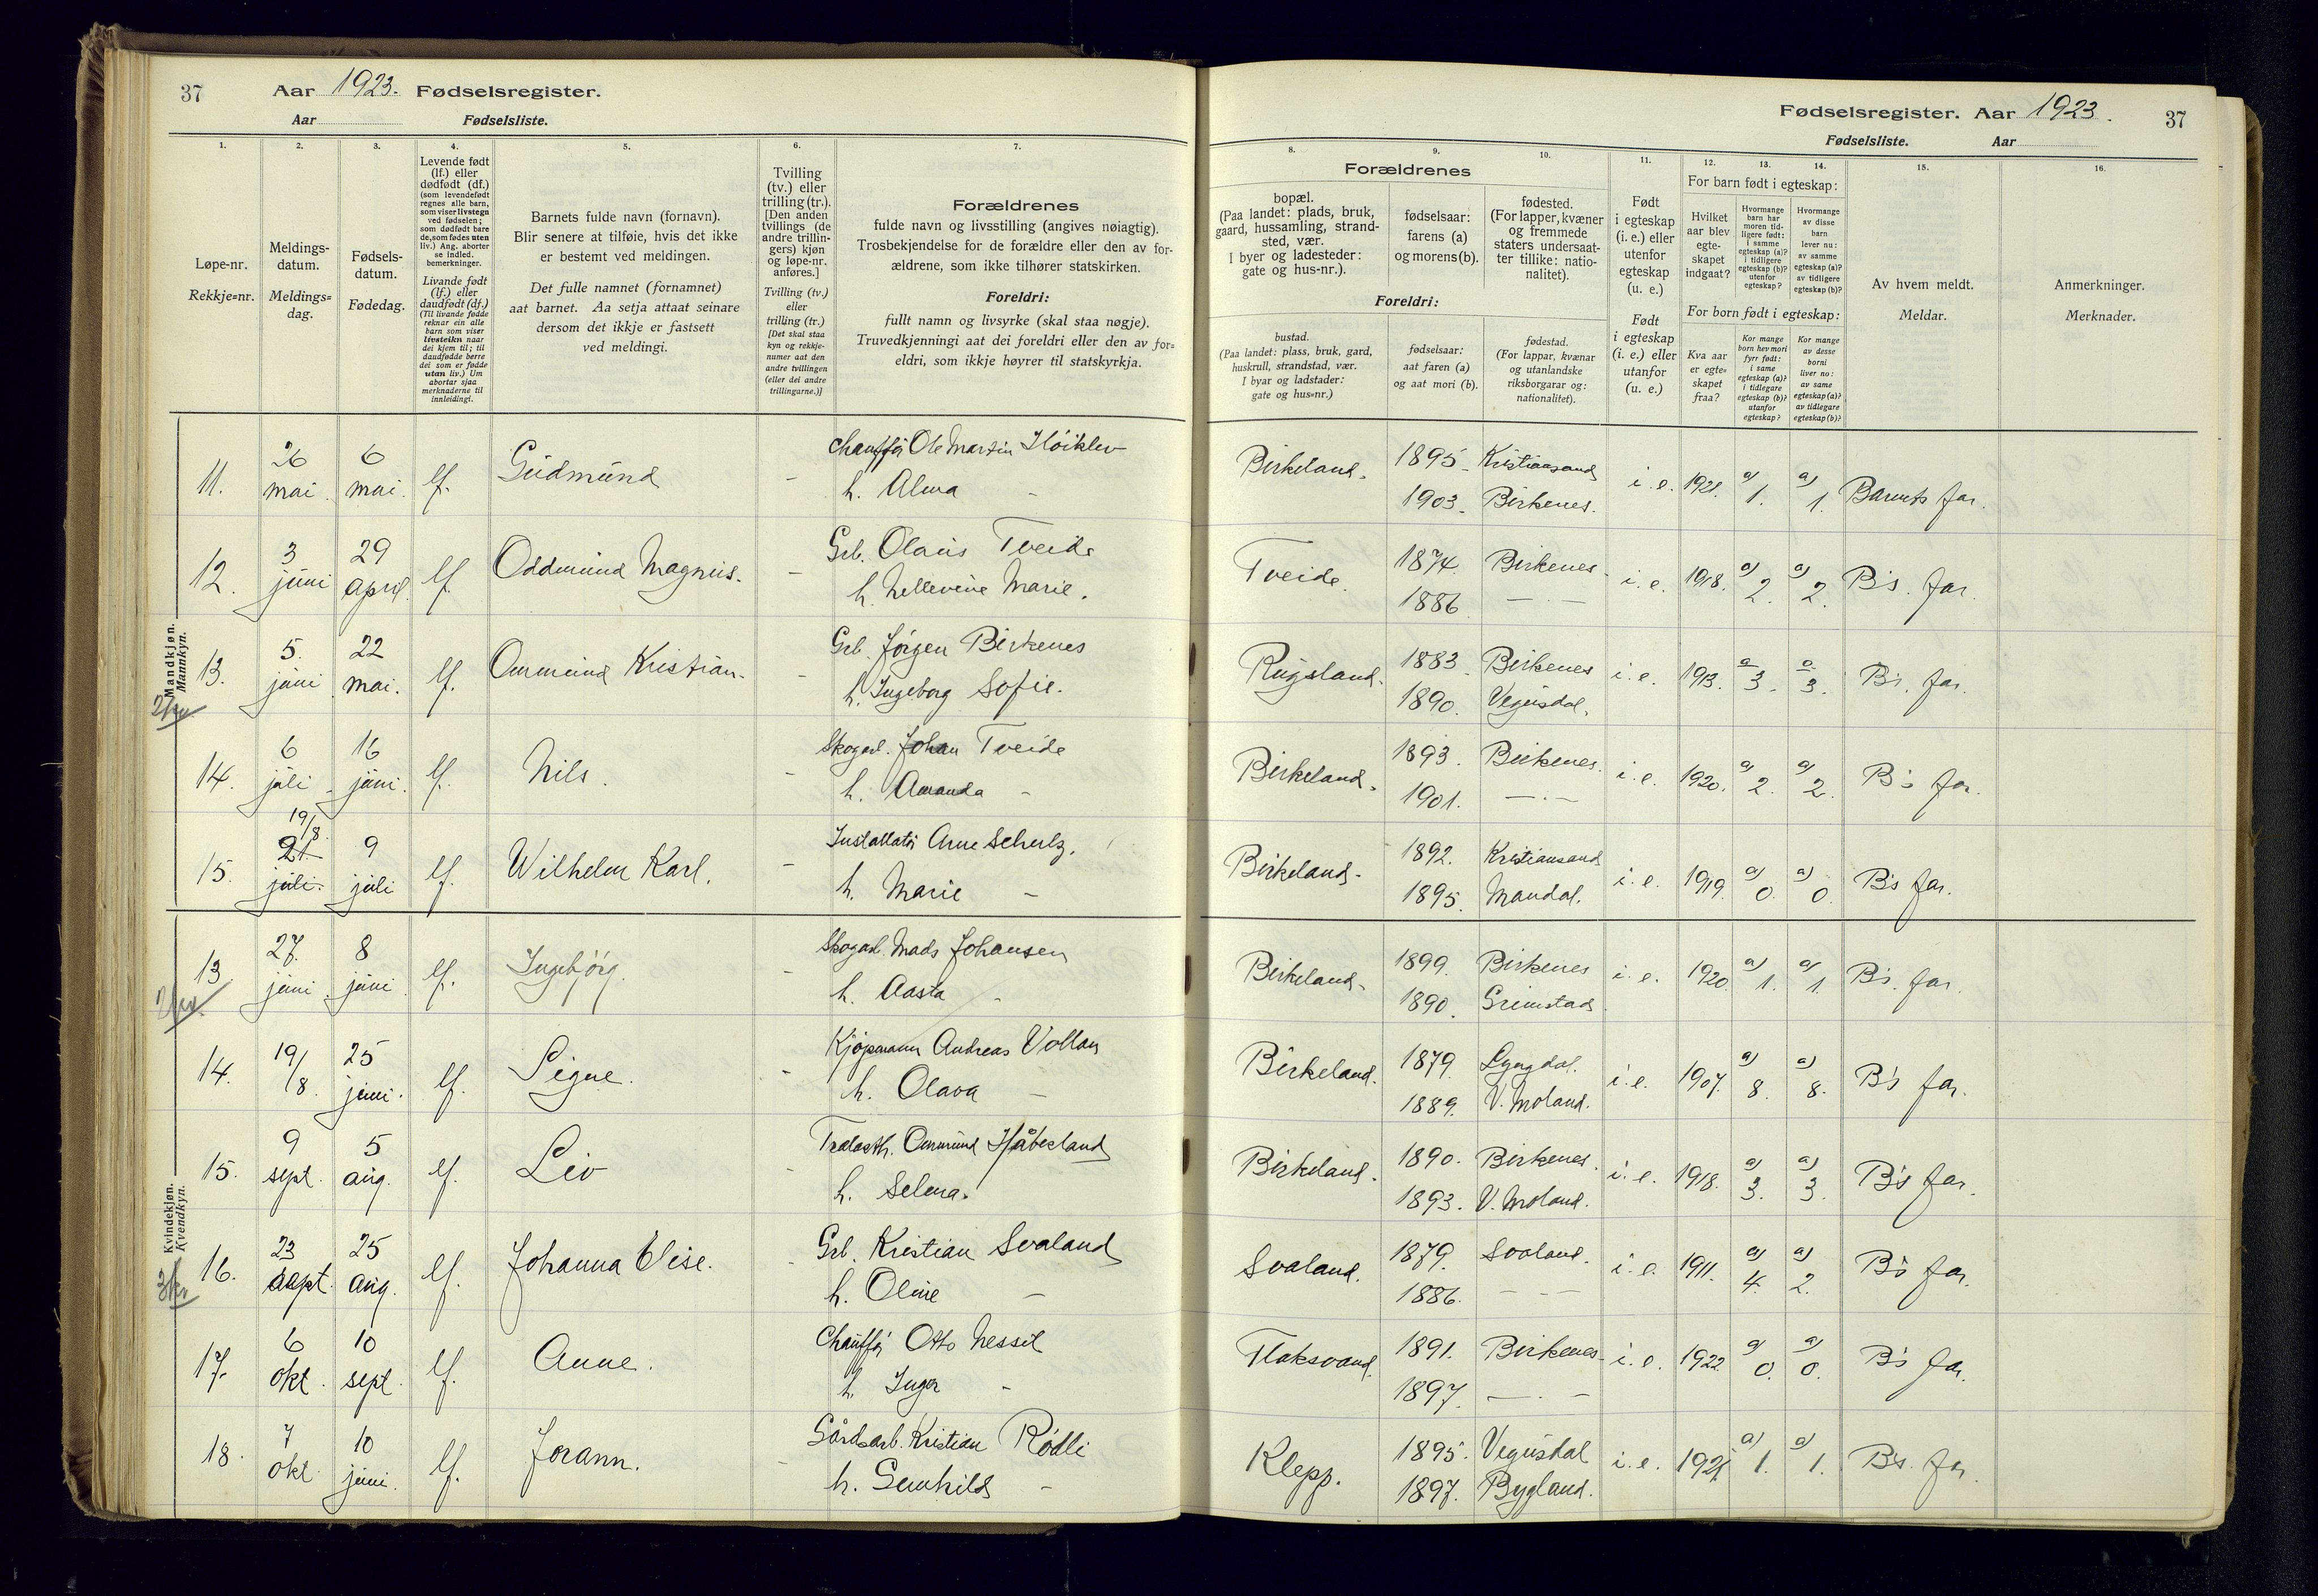 37
Aar 1923. Fødselsregister.
Aar Fødselsliste.
1.
Løpe-nr.
Rekkje=nr.
2.
Meldings-
datum.
Meldings=
dag.
3.
Fødsels-
datum.
Fødedag.
4.
Levende født
(lf.) eller
dødfødt (df.)
(som levendefødt
regnes alle barn,
som viser livstegn
ved fødselen;
som dødfødt bare
de, som fødes uten
liv.) Ang. aborter
se indled.
bemerkninger.
Livande født
(lf.) eller
daudfødt (df.)
(Til livande fødde
reknar ein alle
barn som viser
livsteikn naar
dei kjem til; til
daudfødde berre
dei som er fødde
utan liv.) Um
abortar sjaa
merknaderne til
innleidingi.
5.
Barnets fulde navn (fornavn).
Blir senere at tilføie, hvis det ikke
er bestemt ved meldingen.
Det fulle namnet (fornamnet)
aat barnet. Aa setja attaat seinare
dersom det ikkje er fastsett
ved meldingi.
6.
Tvilling
(tv.) eller
trilling (tr.).
[Den anden
tvillings (de
andre trillin-
gers) kjøn
og løpe-nr.
anføres.]
Tvilling (tv.)
eller
trilling (tr.)
[Det skal staa
kyn og rekkje-
numer aat den
andre tvillingen
(eller dei andre
trillingarne.)]
7.
Forældrenes
fulde navn og livsstilling (angives nøiagtig).
Trosbekjendelse for de forældre eller den av for-
ældrene, som ikke tilhører statskirken.
Foreldri:
fullt namn og livsyrke (skal staa nøgje).
Truvedkjenningi aat dei foreldri eller den av for=
eldri, som ikkje høyrer til statskyrkja.
Fødselsregister. Aar 1923. 37
Fødselsliste. Aar
8.
Forældrenes
bopæl.
(Paa landet: plads, bruk,
gaard, hussamling, strand-
sted, vær.
I byer og ladesteder:
gate og hus-nr.).
Foreldri:
bustad.
(Paa landet: plass, bruk, gard,
huskrull, strandstad, vær.
I byar og ladstader:
gate og hus=nr.)
9.
fødselsaar:
farens (a)
og morens (b).
fødselsaar:
aat faren (a)
og aat mori (b).
10.
fødested.
(For lapper, kvæner
og fremmede
staters undersaat-
ter tillike: natio-
nalitet).
fødestad.
(For lappar, kvænar
og utanlandske
riksborgarar og:
nationalitet).
11.
Født
i egteskap
(i. e.) eller
utenfor
egteskap
(u. e.)
Født
i egteskap
(i. e.) eller
utanfor
(u. e.)
12. 13. 14.
For barn født i egteskap:
Hvilket
aar blev
egte-
skapet
indgaat?
Hvormange
barn har
moren tid-
ligere født:
i samme
egteskap (a)?
i tidligere
egteskap (b)?
utenfor
egteskap?
Hvormange
av disse
barn
lever nu:
av samme
egteskap (a)?
av tidligere
egteskap (b)?
For born født i egteskap:
Kva aar
er egte=
skapet
fraa?
Kor mange
born hev mori
fyrr født:
i same
egteskap (a)?
i tidlegare
egteskap (b)?
utanfor
egteskap?
Kor mange
av desse
borni
liver no:
av same
egteskap (a)?
av tidlegare
egteskap (b)?
15.
Av hvem meldt.
Meldar.
16.
Anmerkninger.
Merknader.
Mandkjøn.
Mannkyn.
11. 26 mai. 6 mai. lf. Gudmund - Chauffør Ole Martin Høiklev Birkeland. 1895. Kristiansand i. e. 1921. a) 1. a) 1. Barnets far.
h. Alma - 1903. Birkenes.
12. 3 juni 29 april. lf. Oddmund Magnus. - Grb. Olaus Tveide Tveide. 1874. Birkenes i. e. 1918. a) 2. a) 2. B's. far.
h. Nellevine Marie. 1886 — · —
13. 5. juni 22 mai. lf. Ommund Kristian. Grb. Jørgen Birkenes Rugsland. 1883. Birkenes i. e. 1913. a 3. a. 3. B's. far.
h. Ingeborg Sofie. 1890. Vegusdal.
14. 6 juli 16 juni. lf. Nils. - Skogarb. Johan Tveide Birkeland. 1893. Birkenes. i. e. 1920. a) 2. a) 2. B's far.
h. Amanda - 1901. — · —
15. 19/8. 21 juli. 9 juli lf. Wilhelm Karl. - Installatør Arne Schulz. Birkeland. 1892. Kristiansand i. e. 1919. a) 0. a) 0. B's far.
h. Marie - 1895. Mandal.
Kvindekjøn.
Kvendkyn.
13 27. juni 8 juni lf. Ingebjörg. - Skogarb. Mads Johansen Birkeland. 1899. Birkenes i. e. 1920. a) 1. a) 1. B's. far.
h. Aasta - 1890. Grimstad
14. 19/8. 25 juni. lf. Signe. - Kjøpmann Andreas Vollan Birkeland. 1879. Lyngdal. i. e. 1907. a) 8. a) 8. B's far.
h. Olava - 1889. V. Moland.
15. 9 sept. 5 aug. lf. Liv - Trælasth. Ommund Håbesland Birkeland. 1890. Birkenes. i. e. 1918. a) 3. a) 3. B's far.
h. Selma. 1893. V. Moland.
16. 23 sept. 25 aug. lf. Johanna Elise. - Grb. Kristian Svaland Svaland. 1879. Svaland. i. e. 1911. a) 4. a) 2. B's far.
h. Oline - 1886. — · —
17. 6 okt. 10 sept. lf. Anne. - Chauffør Otto Nessel Flaksvand. 1891. Birkenes i. e. 1922 a) 0. a) 0. B's far.
h. Inger - 1897. — · —
18. 7 okt. 10 juni. lf. Jorann. - Gårdsarb. Kristian Rødli Klepp. 1895. Vegusdal i. e. 1921 a) 1. a) 1. B's. far.
h. Gunhild - 1897. Bygland.